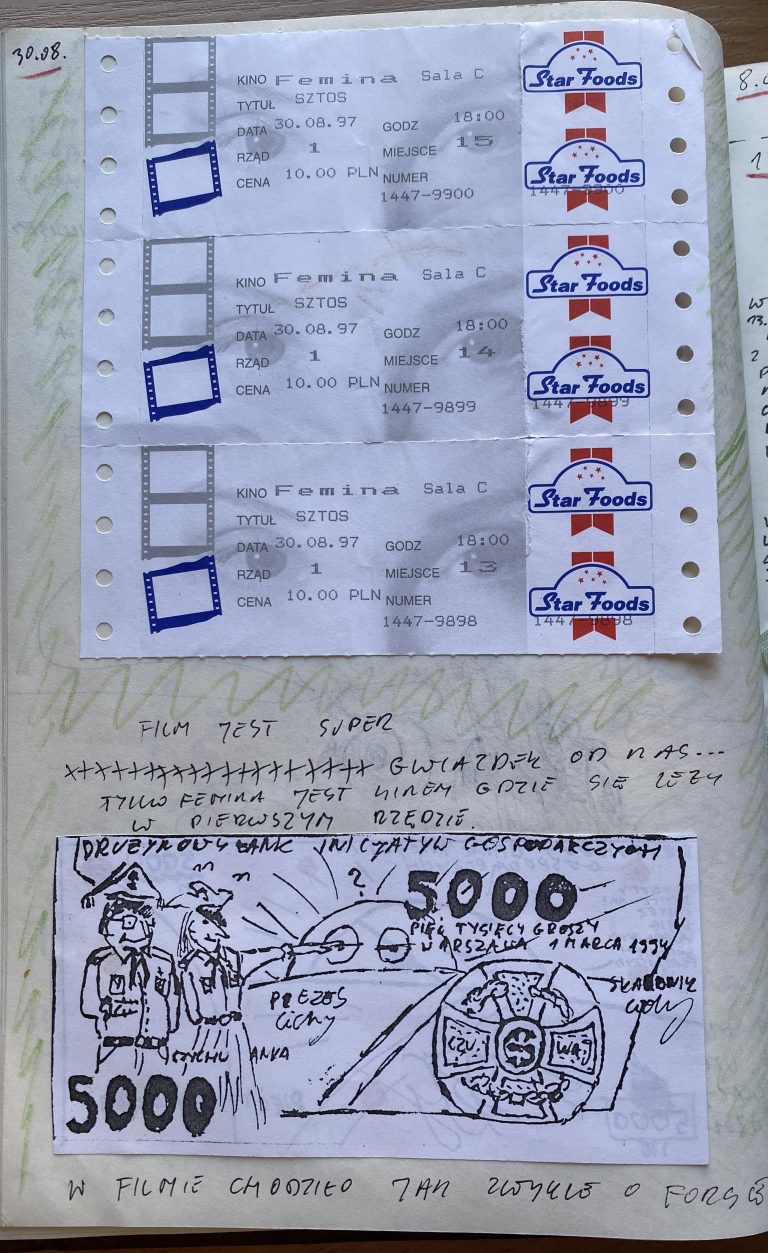 30.08.
KINO Femina Sala C
TYTUŁ SZTOS
DATA 30.08.97 GODZ 18:00
RZĄD 1 MIEJSCE 15
CENA 10.00 PLN NUMER
1447-9900
Star Foods
Star Foods
1447-9900
KINO Femina Sala C
TYTUŁ SZTOS
DATA 30.08.97 GODZ 18:00
RZĄD 1 MIEJSCE 14
CENA 10.00 PLN NUMER
1447-9899
Star Foods
Star Foods
1447-9899
KINO Femina Sala C
TYTUŁ SZTOS
DATA 30.08.97 GODZ 18:00
RZĄD 1 MIEJSCE 13
CENA 10.00 PLN NUMER
1447-9898
Star Foods
Star Foods
1447-9898
FILM JEST SUPER
GWIAZDEK OD NAS...
TYLKO FEMINA JEST KINEM GDZIE SIĘ LEŻY
W PIERWSZYM RZĘDZIE.
DRUŻYNOWY BANK INICJATYW GOSPODARCZYCH
?
5000
PIĘĆ TYSIĘCY GROSZY
WARSZAWA 1 MARCA 1994
PREZES
Cichy
SKARBNIK
Cichy
CZUWAJ
ANKA
5000
W FILMIE CHODZIŁO JAK ZWYKLE O FORSĘ
8.
1